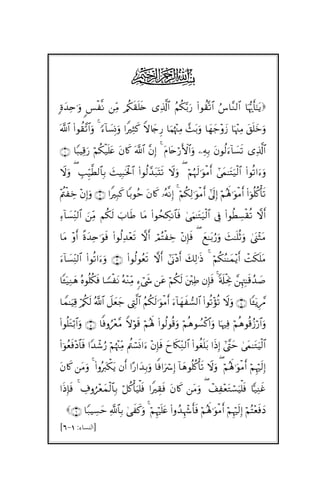 بِسْمِ ٱللَّهِ ٱلرَّحْمَٰنِ ٱلرَّحِيمِ
﴿يَٰٓأَيُّهَا ٱلنَّاسُ ٱتَّقُوا۟ رَبَّكُمُ ٱلَّذِى خَلَقَكُم مِّن نَّفْسٍ وَٰحِدَةٍ
وَخَلَقَ مِنْهَا زَوْجَهَا وَبَثَّ مِنْهُمَا رِجَالًا كَثِيرًا وَنِسَآءً ۚ وَٱتَّقُوا۟ ٱللَّهَ
ٱلَّذِى تَسَآءَلُونَ بِهِۦ وَٱلْأَرْحَامَ ۚ إِنَّ ٱللَّهَ كَانَ عَلَيْكُمْ رَقِيبًا ۝١
وَءَاتُوا۟ ٱلْيَتَٰمَىٰٓ أَمْوَٰلَهُمْ ۖ وَلَا تَتَبَدَّلُوا۟ ٱلْخَبِيثَ بِٱلطَّيِّبِ ۖ وَلَا
تَأْكُلُوٓا۟ أَمْوَٰلَهُمْ إِلَىٰٓ أَمْوَٰلِكُمْ ۚ إِنَّهُۥ كَانَ حُوبًا كَبِيرًا ۝٢ وَإِنْ خِفْتُمْ
أَلَّا تُقْسِطُوا۟ فِى ٱلْيَتَٰمَىٰ فَٱنكِحُوا۟ مَا طَابَ لَكُم مِّنَ ٱلنِّسَآءِ
مَثْنَىٰ وَثُلَٰثَ وَرُبَٰعَ ۖ فَإِنْ خِفْتُمْ أَلَّا تَعْدِلُوا۟ فَوَٰحِدَةً أَوْ مَا
مَلَكَتْ أَيْمَٰنُكُمْ ۚ ذَٰلِكَ أَدْنَىٰٓ أَلَّا تَعُولُوا۟ ۝٣ وَءَاتُوا۟ ٱلنِّسَآءَ
صَدُقَٰتِهِنَّ نِحْلَةً ۚ فَإِن طِبْنَ لَكُمْ عَن شَىْءٍ مِّنْهُ نَفْسًا فَكُلُوهُ هَنِيٓـًٔا
مَّرِيٓـًٔا ۝٤ وَلَا تُؤْتُوا۟ ٱلسُّفَهَآءَ أَمْوَٰلَكُمُ ٱلَّتِى جَعَلَ ٱللَّهُ لَكُمْ قِيَٰمًا
وَٱرْزُقُوهُمْ فِيهَا وَٱكْسُوهُمْ وَقُولُوا۟ لَهُمْ قَوْلًا مَّعْرُوفًا ۝٥ وَٱبْتَلُوا۟
ٱلْيَتَٰمَىٰ حَتَّىٰٓ إِذَا بَلَغُوا۟ ٱلنِّكَاحَ فَإِنْ ءَانَسْتُم مِّنْهُمْ رُشْدًا فَٱدْفَعُوٓا۟
إِلَيْهِمْ أَمْوَٰلَهُمْ ۖ وَلَا تَأْكُلُوهَآ إِسْرَافًا وَبِدَارًا أَن يَكْبَرُوا۟ ۚ وَمَن كَانَ
غَنِيًّا فَلْيَسْتَعْفِفْ ۖ وَمَن كَانَ فَقِيرًا فَلْيَأْكُلْ بِٱلْمَعْرُوفِ ۚ فَإِذَا
دَفَعْتُمْ إِلَيْهِمْ أَمْوَٰلَهُمْ فَأَشْهِدُوا۟ عَلَيْهِمْ ۚ وَكَفَىٰ بِٱللَّهِ حَسِيبًا ۝٦﴾
[النساء: ١-٦]